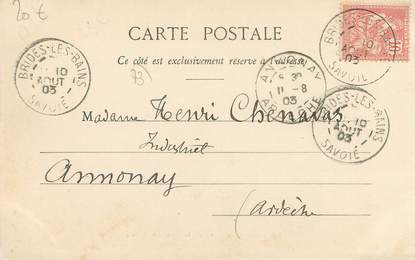 20 €
CARTE POSTALE
Ce côté est exclusivement réservé à l'adresse.
(73)
BRIDES-LES-BAINS
10
AOUT
03
SAVOIE
BRIDES-LES-BAINS
10
03
SAVOIE
11 - 8
03
BRIDES-LES-BAINS
10
AOUT
03
SAVOIE
10
Madame Henri Chenavas
Industriel
Annonay
Ardèche